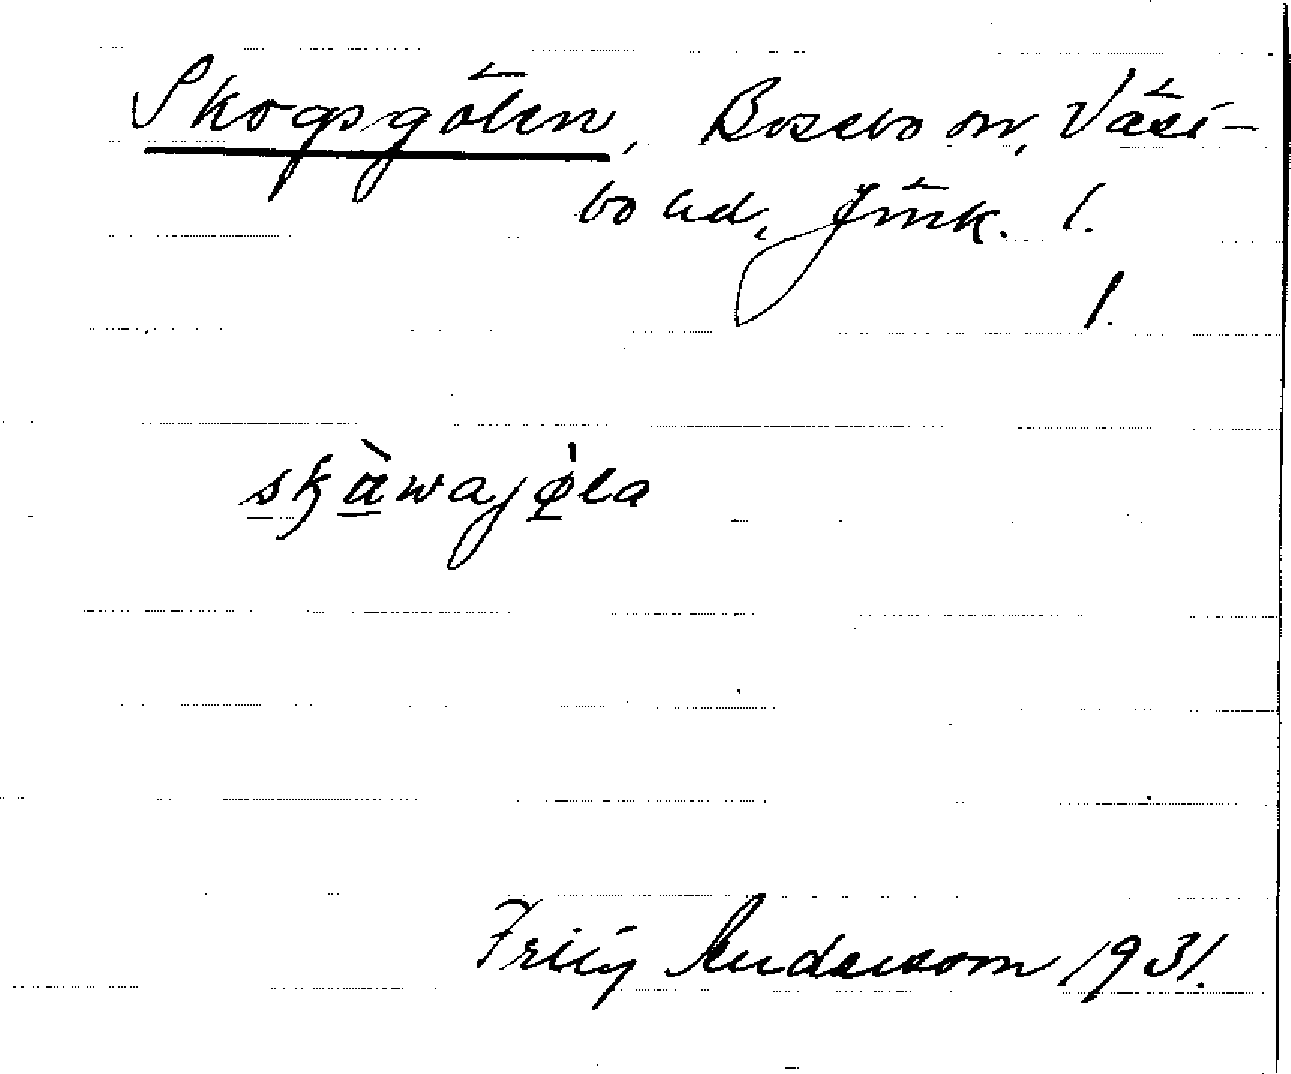 Skogsgölen, Bosebo sn, Väst-
bo hd, Jönk. l.
1.
skàwajø̀la
Frity Andersson 1931.